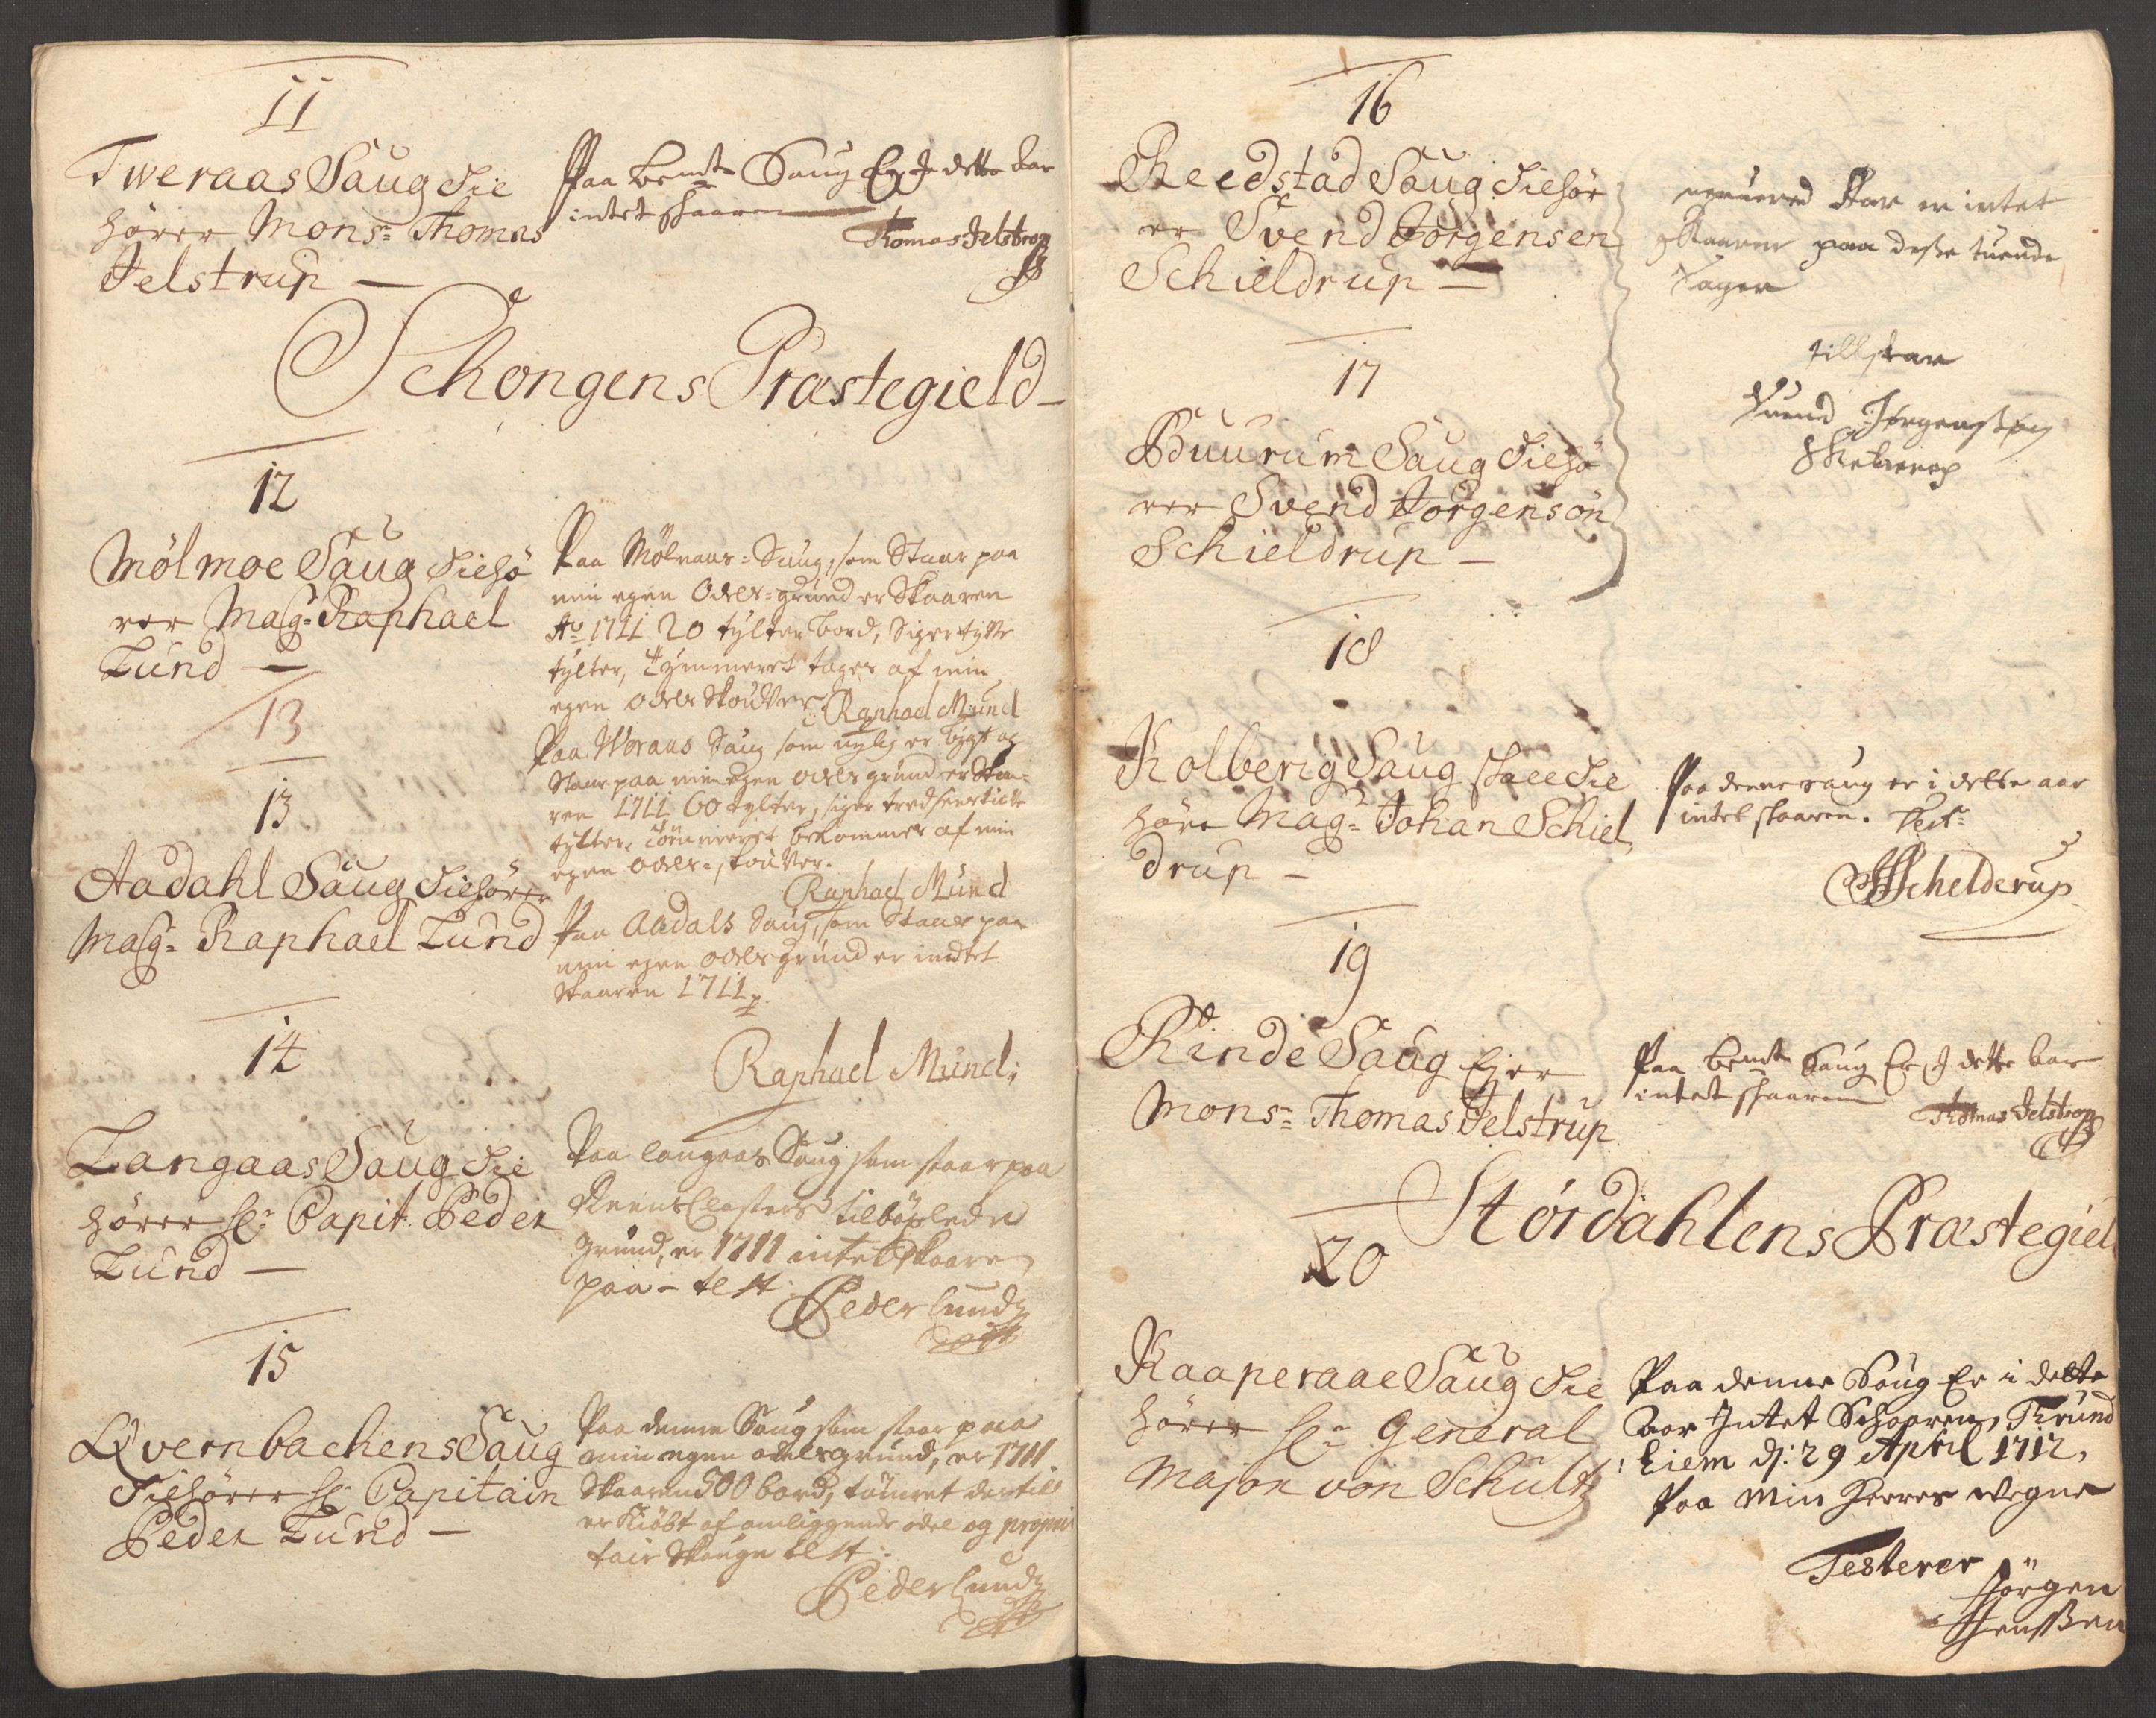 11
Tweraas Saug Tie
hörer Mons:r Thomas
Jelstrup —
Paa bemte Saug Er I dette aar
intet skaaren
Thomas Jelstrop
Schongens Præstegield
12
Mölmoe Saug Tiehö
rer Mag:r Raphael
Lund —
Paa Mölnaas-Saug, som Staar paa
min egen Odels-grund er Skaaren
Ao 1711 20 tylter bord, Siger tyffve
tylter, Tymmeret tages af min
egen odels Skouver. Raphael Mund
13
Paa Woraas Saug som nylig er bygt og
Staar paa min egen odels grund er Skaa-
ren 1711 60 tylter, siger tredsindstiuffve
tylter, Tömmeret bekommes af min
egen odels-skouver.
Raphael Mund
13
Aadahl Saug Tiehörer
Mag:r Raphael Lund
Paa Aadals Saug, som Staar paa
min egen odels grund er indtet
Skaaren 1711
Raphael Mund
14
Langaas Saug Tie
hörer Sl: Capit: Peder
Lund —
Paa langaas Saug som staar paa
Reens Closters tilböxlede
grund, er 1711 intet skaaren
paa - test:
Peder Lund
15
Qvernbachens Saug
Tiehörer Sl: Capitain
Peder Lund —
Paa denne Saug som staar paa
min egen odelsgrund, er 1711
Skaaren 500 bord, tömret dertil
er Kiöbt af omliggende odel og propri
tair Skouge test:
Peder Lund
16
Reedstad Saug Tiehör
er Svend Jörgensen
Schieldrup —
Aar er intet
Skaaren paa desse tuende
Sager
tillstaar
Suend Jörgenssön
17
Buurum Saug Tiehö
rer Svend Jörgensön
Schieldrup —
18
Kolberig Saug skall Tie
höre Mag:r Johan Schiel
drup —
Paa denne saug er i dette aar
intet skaaren. Test:
JSchelderup
19
Kinde Saug Ejer
Mons:r Thomas Jelstrup
Paa bemte Saug Er I dette aar
intet skaaren
Thomas Jelstrop
Stördahlens Præstegiel
20
Kaaperaae Saug Tie
hörer Sl:r General
Major von Schultz
Paa denne Saug Er i dette
aar Intet Schaaren, Trund
hiem dj: 29 April 1712,
Paa Min Herres wegne
Testerer
Jörgen
Jenssen